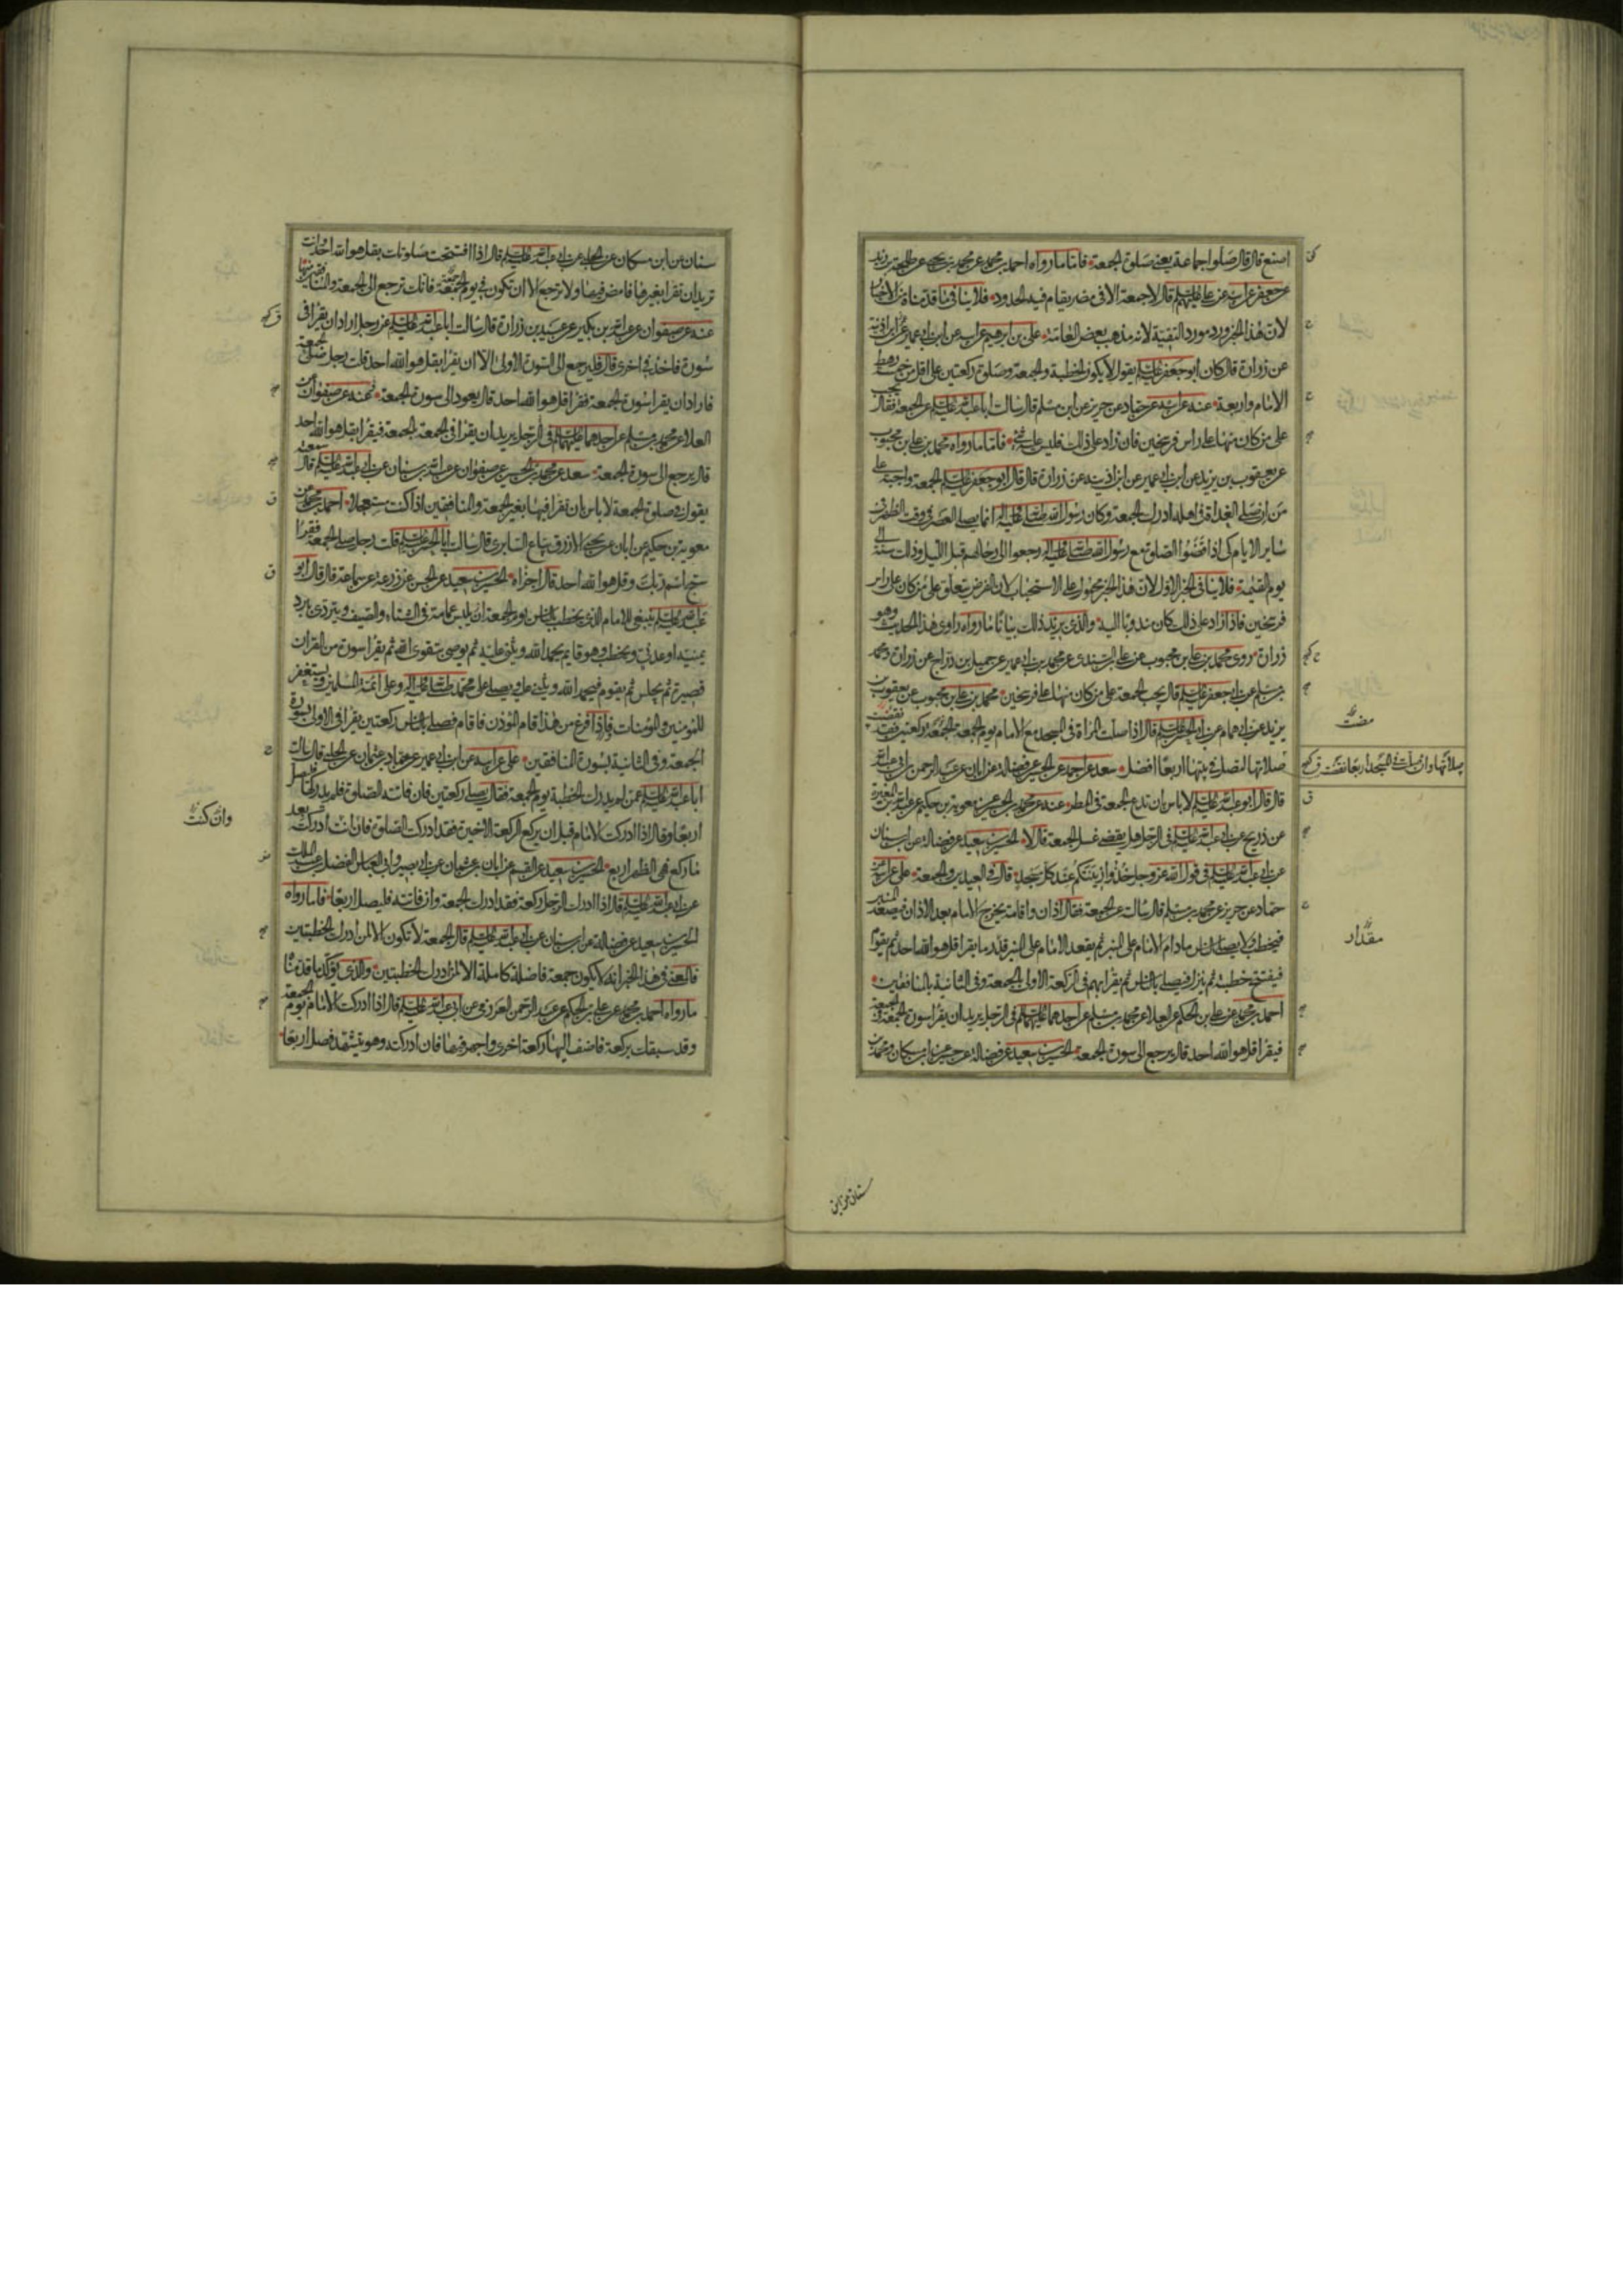 اصنع قال قال صلوا جماعة يعني صلوة الجمعة فاما ما رواه احمد بن محمد عن محمد بن يحيى عن طلحة بن زيد
عن جعفر عن ابيه عن علي عليهم السلم قال لا جمعة الا في مصر يقام فيه الحدود فلا ينافي ما قدمناه من الاخبار
لان هذا الخبر ورد مورد التقية لانه مذهب بعض العامة علي بن ابرهيم عن ابيه عن ابن ابي عمير عن ابن اذينة
عن زرارة قال كان ابو جعفر عليه السلم يقول لا يكون الخطبة والجمعة وصلوة ركعتين على اقل من خمسة رهط
الامام واربعة عنه عن ابيه عن حماد عن حريز عن ابن مسلم قال سالت ابا عبد الله عليه السلم عن الجمعة فقال تجب
على من كان منها على راس فرسخين فان زاد على ذلك فليس عليه شيء فاما ما رواه محمد بن علي بن محبوب
عن يعقوب بن يزيد عن ابن ابي عمير عن ابن اذينة عن زرارة قال قال ابو جعفر عليه السلم الجمعة واجبة على
من ان صلى الغداة في اهله ادرك الجمعة وكان رسول الله صلى الله عليه واله انما يصلي العصر في وقت الظهر في
ساير الايام كي اذا قضوا الصلوة مع رسول الله صلى الله عليه واله رجعوا الى رحالهم قبل الليل وذلك سنة الى
يوم القيمة فلا ينافي الخبر الاول لان هذا الخبر محمول على الاستحباب لان الفرض يتعلق على من كان على راس
فرسخين فاذا زاد على ذلك كان مندوبا اليه والذي يزيد ذلك بيانا ما رواه راوي هذا الحديث وهو
زرارة روى محمد بن علي بن محبوب عن علي بن السندي عن محمد بن ابي عمير عن جميل بن دراج عن زرارة ومحمد
بن مسلم عن ابي جعفر عليه السلم قال يجب الجمعة على من كان منها على فرسخين محمد بن علي بن محبوب عن يعقوب بن
يزيد عن ابي همام عن ابي الحسن عليه السلم قال اذا صلت المراة في المسجد مع الامام يوم الجمعة الجمعة ركعتين فقد نقضت
صلاتها لتصل في بيتها اربعا افضل سعد عن احمد عن الحسين عن فضالة عن ابان عن عبد الرحمن بن ابي عبد الله
قال قال ابو عبد الله عليه السلم لا باس ان تدع الجمعة في المطر عنه عن محمد بن الحسين عن معوية بن حكيم عن عبد الله بن المغيرة
عن ذريح عن ابي عبد الله عليه السلم في الرجل هل يقضي غسل الجمعة قال لا الحسين بن سعيد عن فضالة عن ابن سنان
عن ابي عبد الله عليه السلم في قول الله عز وجل خذوا زينتكم عند كل مسجد قال في العيدين والجمعة علي عن ابيه عن
حماد عن حريز عن محمد بن مسلم قال سالته عن الجمعة فقال اذان واقامة يخرج الامام بعد الاذان فيصعد المنبر
فيخطب ولا يصلي الناس ما دام الامام على المنبر ثم يقعد الامام على المنبر قدر ما يقرا قل هو الله احد ثم يقوم
فيفتتح خطبته ثم ينزل فيصلي بالناس ثم يقرا بهم في الركعة الاولى بالجمعة وفي الثانية بالمنافقين
احمد بن محمد عن علي بن الحكم عن العلا عن محمد بن مسلم عن احدهما عليهما السلم في الرجل يريد ان يقرا سورة الجمعة في الجمعة
فيقرا قل هو الله احد قال يرجع الى سورة الجمعة الحسين بن سعيد عن فضالة عن حسين عن ابن مسكان ومحمد بن
مضت
صلاتها وان صلت في المسجد اربعا نقضت
مقدار
سنان عن ابن
سنان عن ابن مسكان عن الحلبي عن ابي عبد الله عليه السلم قال اذا افتتحت صلوتك بقل هو الله احد وانت
تريد ان تقرا بغيرها فامض فيها ولا ترجع الا ان تكون في يوم الجمعة فانك ترجع الى الجمعة والمنافقين منها
عنه عن صفوان عن عبد الله بن بكير عن عبيد بن زرارة قال سالت ابا عبد الله عليه السلم عن رجل اراد ان يقرا في
سورة فاخذ في اخرى قال فليرجع الى السورة الاولى الا ان يقرا بقل هو الله احد قلت رجل صلى الجمعة
فاراد ان يقرا سورة الجمعة فقرا قل هو الله احد قال يعود الى سورة الجمعة عنه عن صفوان عن
العلا عن محمد بن مسلم عن احدهما عليهما السلم في الرجل يريد ان يقرا في الجمعة الجمعة فيقرا بقل هو الله احد
قال يرجع الى سورة الجمعة سعد عن محمد بن الحسين عن صفوان عن عبد الله بن سنان عن ابي عبد الله عليه السلم قال سمعته
يقول في صلوة الجمعة لا باس بان تقرا فيها بغير الجمعة والمنافقين اذا كنت مستعجلا احمد بن محمد عن
معوية بن حكيم عن ابان عن يحيى الازرق بياع السابري قال سالت ابا الحسن عليه السلم قلت رجل صلى الجمعة فقرا
سبح اسم ربك وقل هو الله احد قال اجزاه الحسين بن سعيد عن الحسن عن زرعة عن سماعة قال قال ابو
عبد الله عليه السلم ينبغي للامام الذي يخطب بالناس يوم الجمعة ان يلبس عمامة في الشتاء والصيف ويتردى ببرد
يمنية او عدني ويخطب وهو قايم يحمد الله ويثني عليه ثم يوصي بتقوى الله ثم يقرا سورة من القران
قصيرة ثم يجلس ثم يقوم فيحمد الله ويثني عليه ويصلي على محمد صلى الله عليه واله وعلى ائمة المسلمين ويستغفر
للمؤمنين والمؤمنات فاذا فرغ من هذا قام المؤذن فاقام فصلى بالناس ركعتين يقرا في الاولى بسورة
الجمعة وفي الثانية بسورة المنافقين علي عن ابيه عن ابن ابي عمير عن حماد بن عثمان عن الحلبي قال سالت
ابا عبد الله عليه السلم عمن لم يدرك الخطبة يوم الجمعة فقال يصلي ركعتين فان فاتته الصلوة فلم يدركها فليصل
اربعا وقال اذا ادركت الامام قبل ان يركع الركعة الاخيرة فقد ادركت الصلوة فان انت ادركته بعد
ما ركع فهي الظهر اربع الحسين بن سعيد عن القسم عن ابان بن عثمان عن ابي بصير وابي العباس الفضل بن عبد الملك
عن ابي عبد الله عليه السلم قال اذا ادرك الرجل ركعة فقد ادرك الجمعة وان فاتته فليصل اربعا فاما ما رواه
الحسين بن سعيد عن فضالة عن ابن سنان عن ابي عبد الله عليه السلم قال الجمعة لا تكون الا لمن ادرك الخطبتين
فالمعنى في هذا الخبر انه لا يكون جمعة فاضلة كاملة الا لمن ادرك الخطبتين والذي يؤكد ما قدمنا
ما رواه احمد بن محمد عن علي بن الحكم عن عبد الرحمن العرزمي عن ابي عبد الله عليه السلم قال اذا ادركت الامام يوم الجمعة
وقد سبقك بركعة فاضف اليها ركعة اخرى واجهر فيها فان ادركته وهو يتشهد فصل اربعا
وان كنت